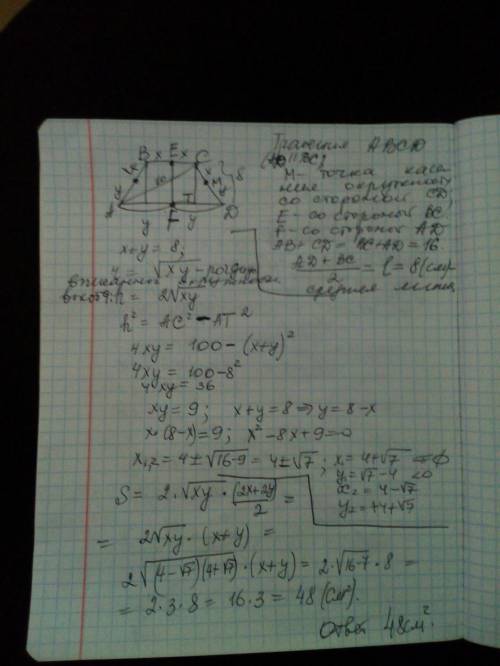 B x E x C
x
x
M
8
y
y
A
F
T
D
y
y
Трапеция ABCD
(AD || BC)
M - точка каса-
ния окружности
со стороной CD,
E - со стороной BC
F - со стороной AD
AB + CD = BC + AD = 16
AD + BC / 2 = l = 8 (см)
средняя линия
x+y = 8;
= √xy -
вписанной окружности
h = 2√xy
h² = AC² - AT²
4xy = 100 - (x+y)²
4xy = 100 - 8²
4xy = 36
xy = 9; x+y = 8 => y = 8-x
x·(8-x) = 9; x² - 8x + 9 = 0
x₁,₂ = 4 ± √16-9 = 4 ± √7; x₁ = 4+√7 ⇒ ∅
y₁ = √7-4 <0
x₂ = 4-√7
y₂ = +4+√7
S = 2·√xy · (2x+2y)/2 =
= 2√xy · (x+y) =
2√(4-√7)(4+√7) · (x+y) = 2·√16-7 · 8 =
= 2·3·8 = 16·3 = 48 (см²).
Ответ 48 см².